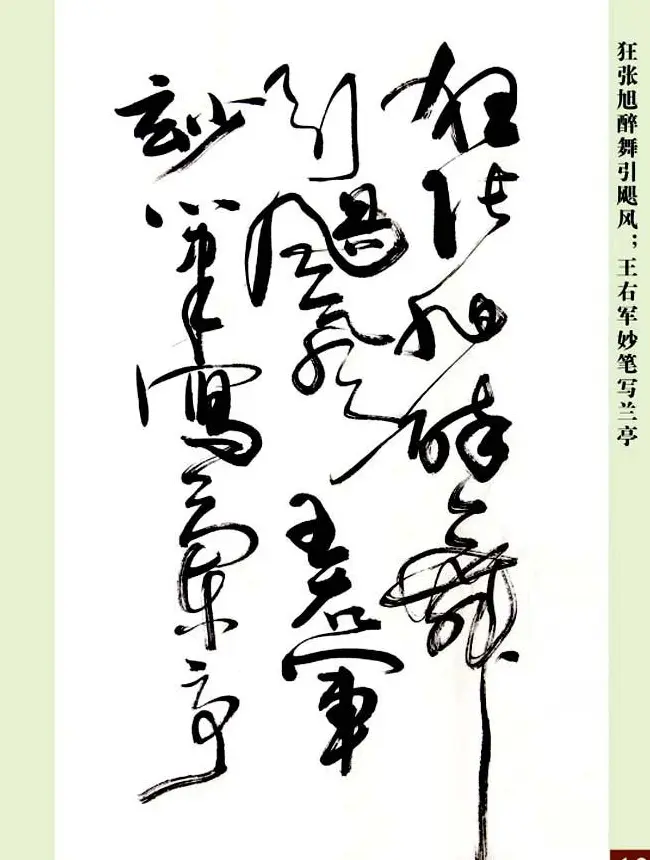 狂张旭醉舞
引飓风王右军
玅笔寫蘭亭
狂张旭醉舞引飓风；王右军妙笔写兰亭